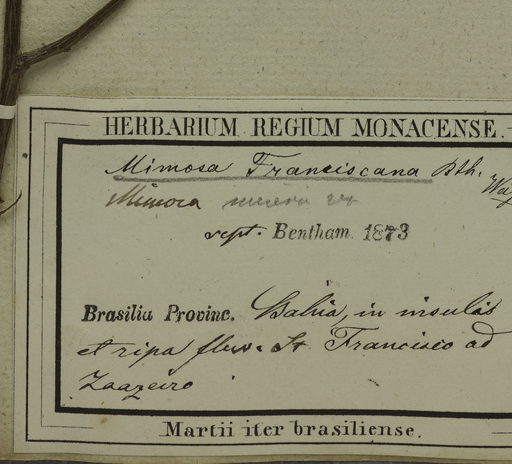 HERBARIUM REGIUM MONACENSE.
Mimosa Franciscana Bth.
Mimosa
sept. Bentham. 1873
Brasilia Provinc. Bahia, in insulis
et ripa fluv. St Francisco ad
Joazeiro
Martii iter brasiliense.